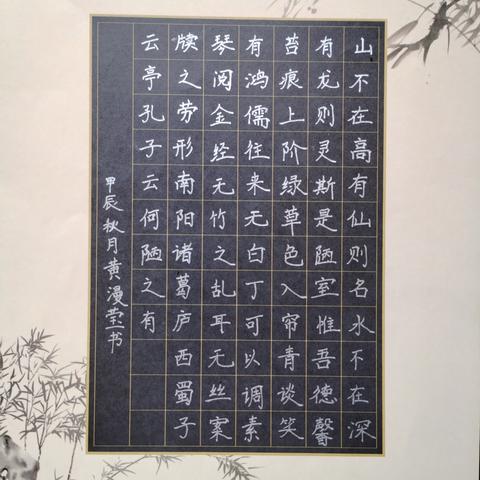 山不在高有仙则名水不在深
有龙则灵斯是陋室惟吾德馨
苔痕上阶绿草色入帘青谈笑
有鸿儒往来无白丁可以调素
琴阅金经无竹之乱耳无丝案
牍之劳形南阳诸葛庐西蜀子
云亭孔子云何陋之有
甲辰秋月黄漫莹书